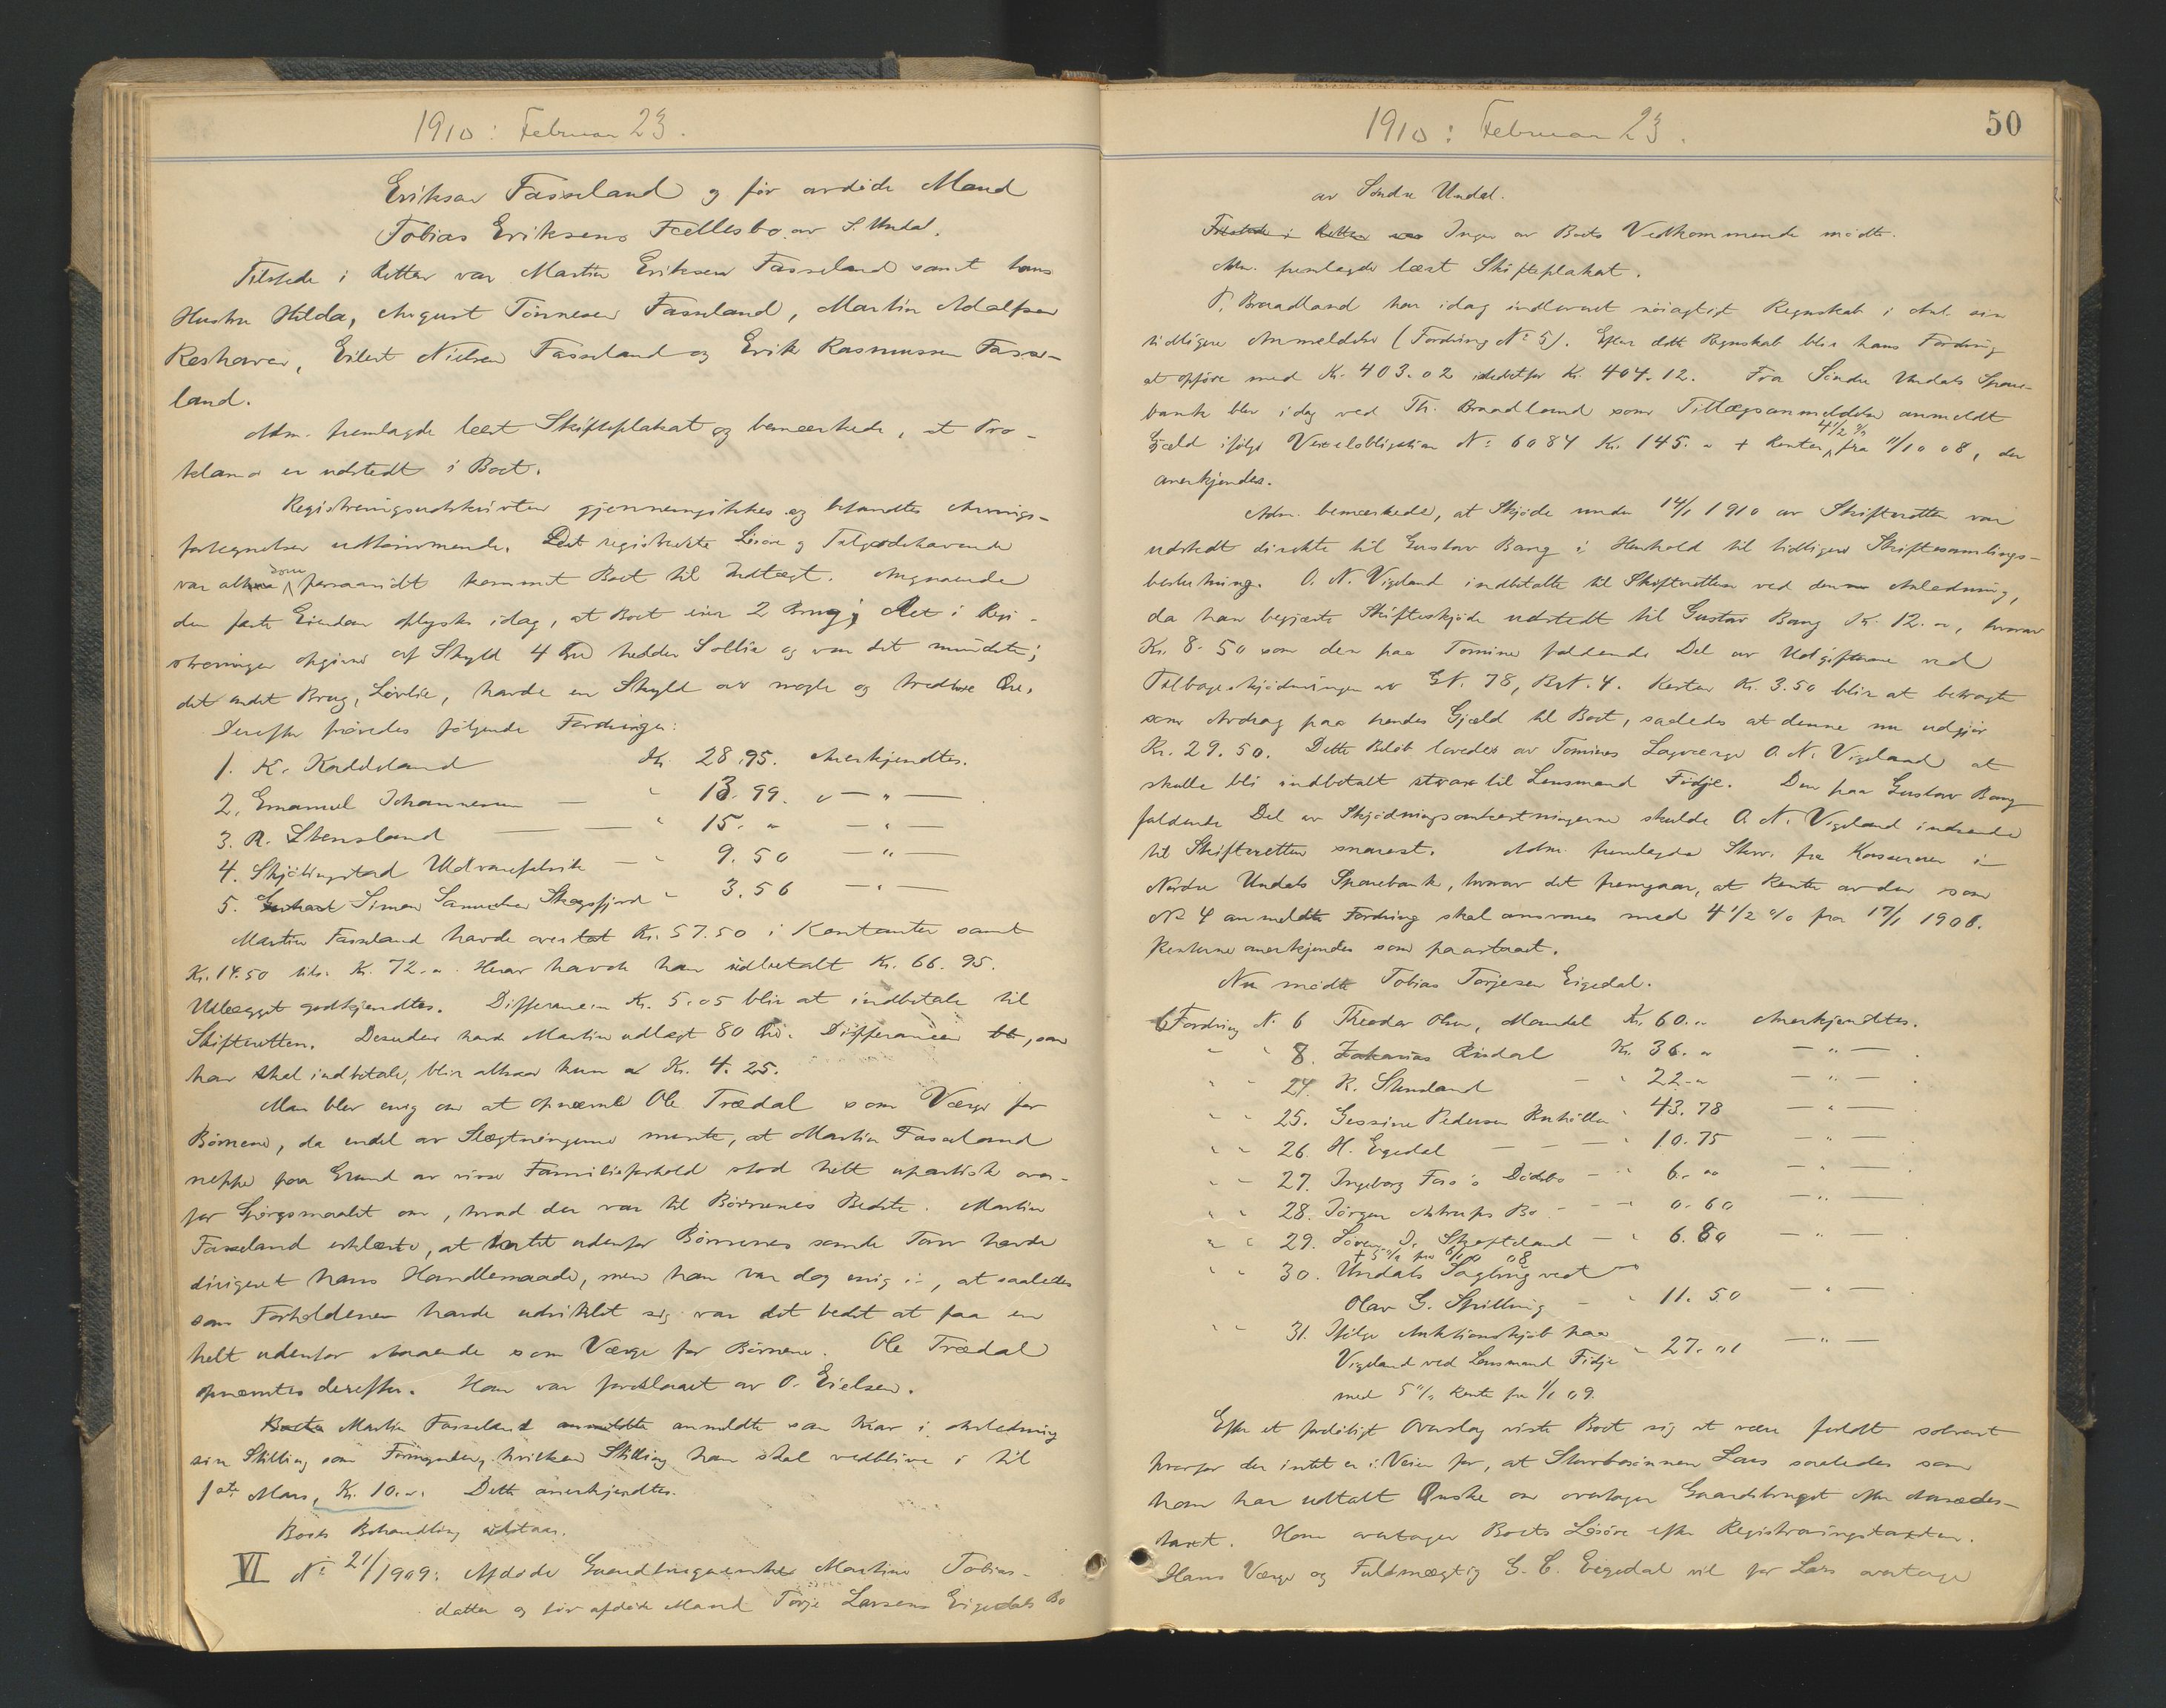 1910: Februar 23.
Eriksen Fasseland og før avdøde Mand
Tobias Eriksens Fællesbo av S. Undal.
Tilstede i Retten var Martin Eriksen Fasseland samt hans
Hustru Hilda, August Tønnesen Fasseland, Martin Adolfsen
Reshaven, Eilert Nielsen Fasseland og Erik Rasmussen Fasse-
land.
Adm. fremlagde læst Skifteplakat og bemærkede, at Pro-
klama er udstedt i Boet.
Registreringsudskriften gjennemgikkes og befandtes Arvings-
fortegnelsen udtømmende. Det registrerte Løsøre og Tilgodehavende
var som forsaavidt kommet Boet til Indtægt. Angaaende
den faste Eiendom oplystes idag, at Boet eier 2 Brug; det i Regi-
streringen opgivne af Skyld 4 Øre hedder Sollia og var det mindste;
det andet Brug, Lovlie, havde en Skyld av nogle og tredive Øre.
Derefter prøvedes følgende Fordringer:
1. K. Kaddeland Kr. 28.95. Anerkjendtes.
2. Emanuel Johannesen — " 13.99. — " —
3. R. Stensland — — " 15. " — " —
4. Skjölingstad Uldvarefabrik — " 9.50 — " —
5. Simon Samuelsen Skogsfjord " 3.56 — " —
Martin Fasseland havde overtat Kr. 57.50 i Kontanter samt
Kr. 14.50 tils. Kr. 72. ". Herav havde han udbetalt Kr. 66.95.
Udlægget godkjendtes. Differansen Kr. 5.05 blir at indbetale til
Skifteretten. Desuden havde Martin udlagt 80 Øre. Differansen, som
han skal indbetale, blir altsaa kun Kr. 4.25.
Man blev enig om at opnævnte Ole Trædal som Værge for
Børnene, da endel av Slægtningerne mente, at Martin Fasseland
neppe paa Grund av visse Familieforhold stod helt upartisk over-
for Spørgsmaalet om, hvad der var til Børnenes Bedste. Martin
Fasseland erklærte, at intet udenfor Børnenes sande Tarv havde
dirigeret hans Handlemaade, men han var dog enig i, at saaledes
som Forholdene havde udviklet sig var det bedst at faa en
helt udenfor staaende som Værge for Børnene. Ole Trædal
opnævntes derefter. Han var foreslaaet av O. Eielsen.
Martin Fasseland anmeldte som Krav i Anledning
sin Stilling som Formynder, hvilken Stilling han skal vedblive i til
1ste Mars, Kr. 10. ". Dette anerkjendtes.
Boets Behandling udstaar.
VI No 21/1909: Afdøde Gaardbrugerenke Martine Tobias-
datter og før afdøde Mand Torje Larsens Eigedals Bo
1910: Februar 23.
50
av Søndre Undal.
Tilstede i Retten var Ingen av Boets Vedkommende mødte.
Adm. fremlagde læst Skifteplakat.
T. Braadland har idag indleveret nøiagtigt Regnskab i Anl. sin
tidligere Anmeldelse (Fordring No 5). Efter dette Regnskab blir hans Fordring
at opføre med Kr. 403.02 istedetfor Kr. 404.12. Fra Søndre Undals Spare-
bank blev idag ved Th. Braadland som Tillægsanmeldelse anmeldt
Gjæld ifølge Vexelobligation No: 6084 Kr. 145. " + Renter 4 1/2 % fra 11/10 08, der
anerkjendes.
Adm. bemærkede, at Skjøde under 14/1 1910 av Skifteretten var
udstedt direkte til Gustav Bang i Henhold til tidligere Skiftesamlings-
beslutning. O. N. Vigeland indbetalte til Skifteretten ved denne Anledning,
da han begjærte Skifteskjøde udstedt til Gustav Bang Kr. 12. ", hvorav
Kr. 8.50 som den paa Tomine faldende Del av Udgifterne ved
Tilbageskjødningen av GN. 78, BrN. 4. Resten Kr. 3.50 blir at betragte
som Avdrag paa hendes Gjæld til Boet, saaledes at denne nu udgjør
Kr. 29.50. Dette Beløb lovedes av Tomines Lagværge O. N. Vigeland at
skulle bli indbetalt til Lensmand Fidje. Den paa Gustav Bang
faldende Del av Skjødningsomkostningerne skulde O. N. Vigeland indsende
til Skifteretten snarest. Adm. fremlagde Skr. fra Kassereren i
Nordre Undals Sparebank, hvorav det fremgaar, at Renter av den som
No 4 anmeldte Fordring skal ansvares med 4 1/2 % fra 17/1 1908.
Renterne anerkjendes som paastaaet.
Nu mødte Tobias Torjesen Eigedal.
Fordring N. 6 Theodor Olsen, Mandal Kr. 60. " Anerkjendtes.
" " 8. Zakarias Risdal Kr. 36. " — " —
" " 24. R. Stensland — " 22 " — " —
" " 25. Gessine Pedersen " 43.78 — " —
" " 26. H. Eigedal — — — " 10.75 — " —
" " 27. Ingeborg Dødsbo — " 6. " — " —
" " 28. Jørgen Astrups Bo — — " 0.60 — " —
" " 29. Søren J. Skofteland — " 6.80 — " —
+ 5 % fra 6/10 08
" " 30. Undals Sagbrug ved
Olav G. Spilling — " 11.50 — " —
" " 31. Ifølge Auktionskjøb paa
Vigeland ved Lensmand Fidje " 27.01 — " —
med 5 % Rente fra 1/1 09.
Efter et foreløbigt Overslag viste Boet sig at være fuldt solvent
hvorfor der intet er i Veien for, at Stervbosønnen Lars saaledes som
han har udtalt Ønske om overtager Gaardsbruget efter Aasædes-
ret. Han overtager Boets Løsøre efter Registreringstaxten.
Hans Værge og Fuldmægtig G. C. Eigedal vil for Lars overtage